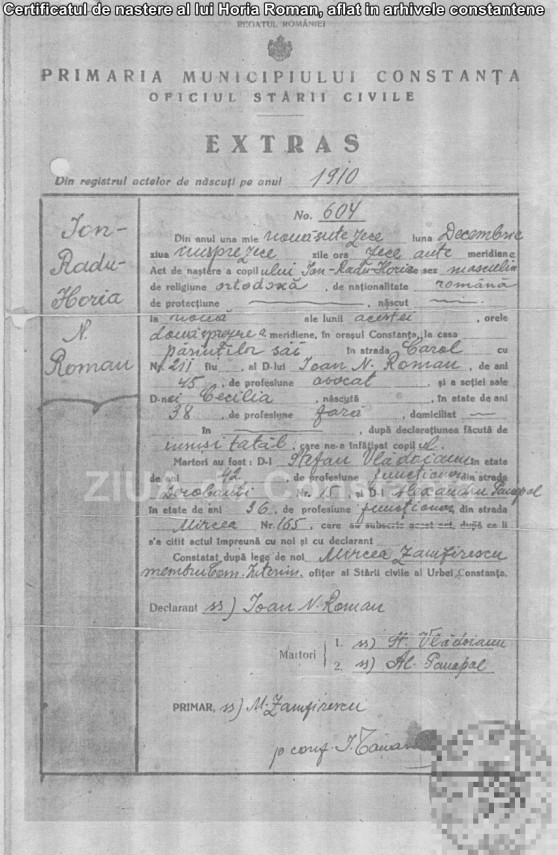 Certificatul de nastere al lui Horia Roman, aflat in arhivele constantene
REGATUL ROMÂNIEI
PRIMARIA MUNICIPIULUI CONSTANȚA
OFICIUL STĂRII CIVILE
EXTRAS
Din registrul actelor de născuți pe anul 1910
Ion-
Radu-
Horia
N.
Roman
No. 604
Din anul una mie nouăsute zece luna Decembrie
ziua unsprezece zile ora zece ante meridiene
Act de naștere a copilului Ion-Radu-Horia sex masculin
de religiune ortodoxă, de naționalitate română
de protecțiune născut
la nouă ale lunii acestei, orele
două meridiene, în orașul Constanța, la casa
părinților săi în strada Carol cu
Nr. 211 fiu al D-lui Ioan N. Roman, de ani
45, de profesiune avocat și a soției sale
D-nei Cecilia, născută, în etate de ani
38, de profesiune fără, domiciliat
în, după declarațiunea făcută de
tatăl, care ne-a înfățișat copilul.
Martori au fost: D-l Ștefan Vlădoianu în etate
de ani 42, de profesiune funcționar din strada
Dorobanți Nr. și D-l Alexandru Panapol
în etate de ani 36, de profesiune funcționar din strada
Mircea Nr. 165, care au subscris acest act, după ce li
s'a citit actul împreună cu noi și cu declarant
Constatat după lege de noi Mircea Zamfirescu
membru Com. Interim. ofițer al Stării civile al Urbei Constanța.
ZIUA de Constanta
Declarant ss) Ioan N. Roman
Martori
1. ss) St. Vlădoianu
2. ss) Al. Panapol
PRIMAR, ss) M. Zamfirescu
p conf.